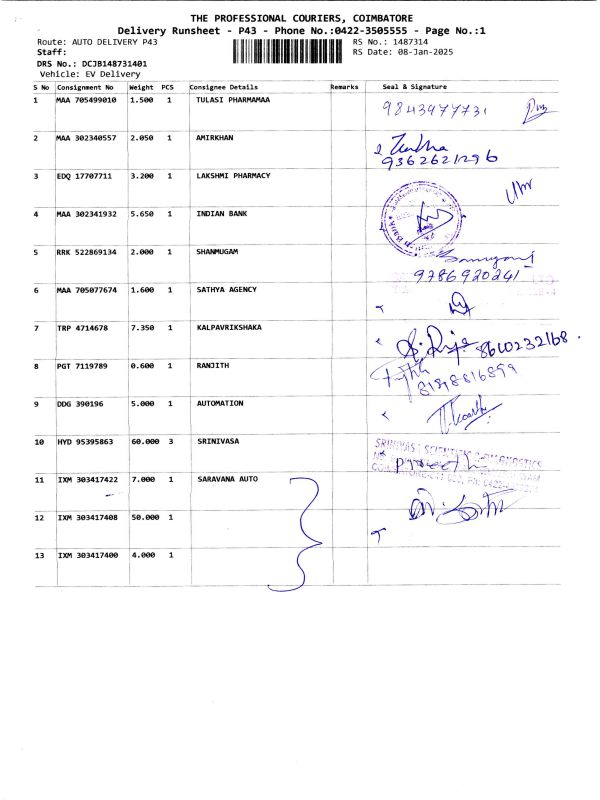 THE PROFESSIONAL COURIERS, COIMBATORE
Delivery Runsheet - P43 - Phone No.:0422-3505555 - Page No.:1
Route: AUTO DELIVERY P43 RS No.: 1487314
Staff: RS Date: 08-Jan-2025
DRS No.: DCJB148731401
Vehicle: EV Delivery
S No Consignment No Weight PCS Consignee Details Remarks Seal & Signature
1 MAA 705499010 1.500 1 TULASI PHARMAMAA 9843977731
2 MAA 302340557 2.050 1 AMIRKHAN
9362621296
3 EDQ 17707711 3.200 1 LAKSHMI PHARMACY
4 MAA 302341932 5.650 1 INDIAN BANK
5 RRK 522869134 2.000 1 SHANMUGAM
9786920241
6 MAA 705077674 1.600 1 SATHYA AGENCY
7 TRP 4714678 7.350 1 KALPAVRIKSHAKA 8610232168.
8 PGT 7119789 0.600 1 RANJITH
9 DDG 390196 5.000 1 AUTOMATION
10 HYD 95395863 60.000 3 SRINIVASA
11 IXM 303417422 7.000 1 SARAVANA AUTO
12 IXM 303417408 50.000 1
13 IXM 303417400 4.000 1